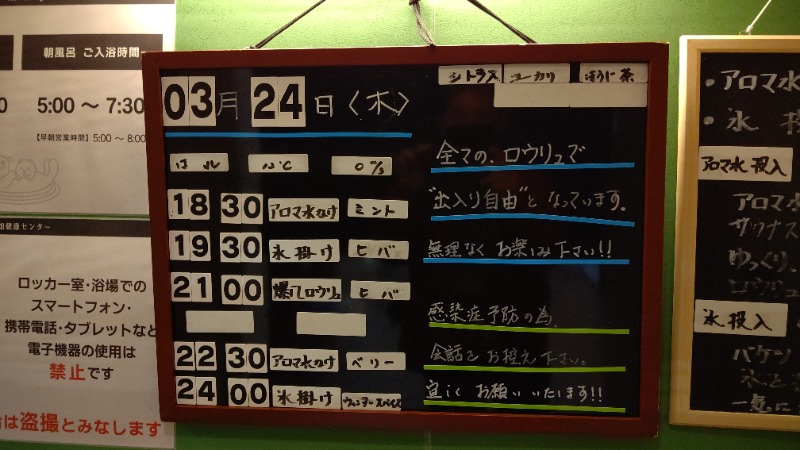 朝風呂 ご入浴時間
5:00 〜 7:30
【早朝営業時間】5:00 〜 8:00
健康センター
ロッカー室・浴場での
スマートフォン・
携帯電話・タブレットなど
電子機器の使用は
禁止です
は盗撮とみなします
03月24日〈木〉
18 30 アロマ水かけ ミント
19 30 氷掛け ヒバ
21 00 爆風ロウリュ ヒバ
22 30 アロマ水かけ ベリー
24 00 氷掛け ウィンタースパイス
シトラス ユーカリ ほうじ茶
全ての、ロウリュで
"出入り自由"となっています。
無理なくお楽しみ下さい!!
感染症予防の為、
会話をお控え下さい。
宜しくお願いいたします!!
・アロマ水
・氷
アロマ水 投入
アロマ水
サウナス
ゆっくり、
ロウリュ
氷投入
バケツ
氷を
一気に